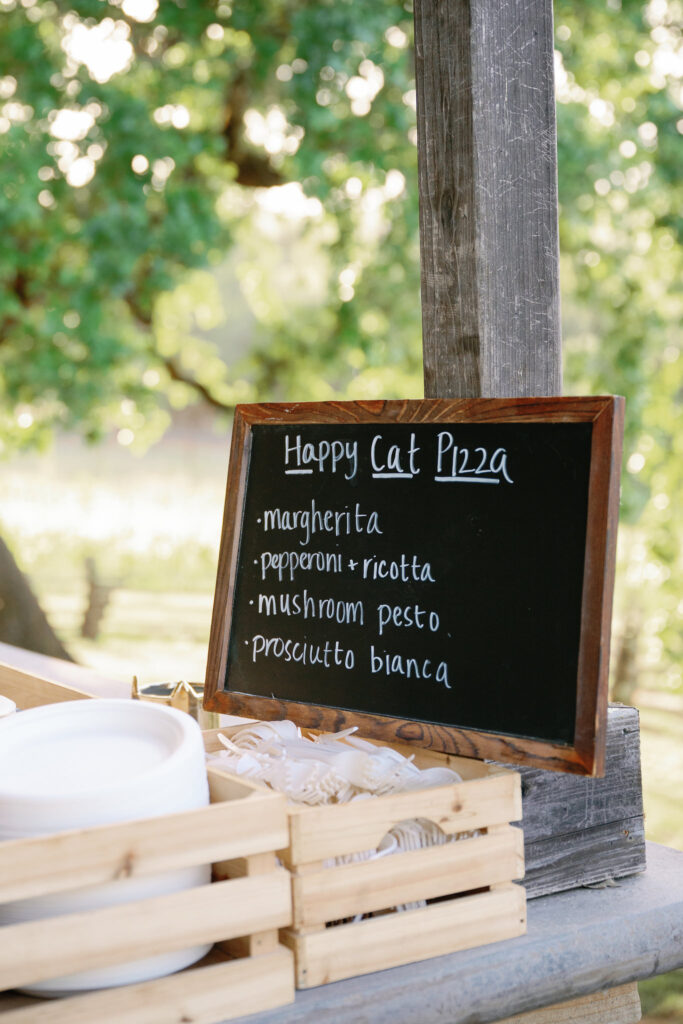 Happy Cat Pizza
· margherita
· pepperoni + ricotta
· mushroom pesto
· prosciutto bianca